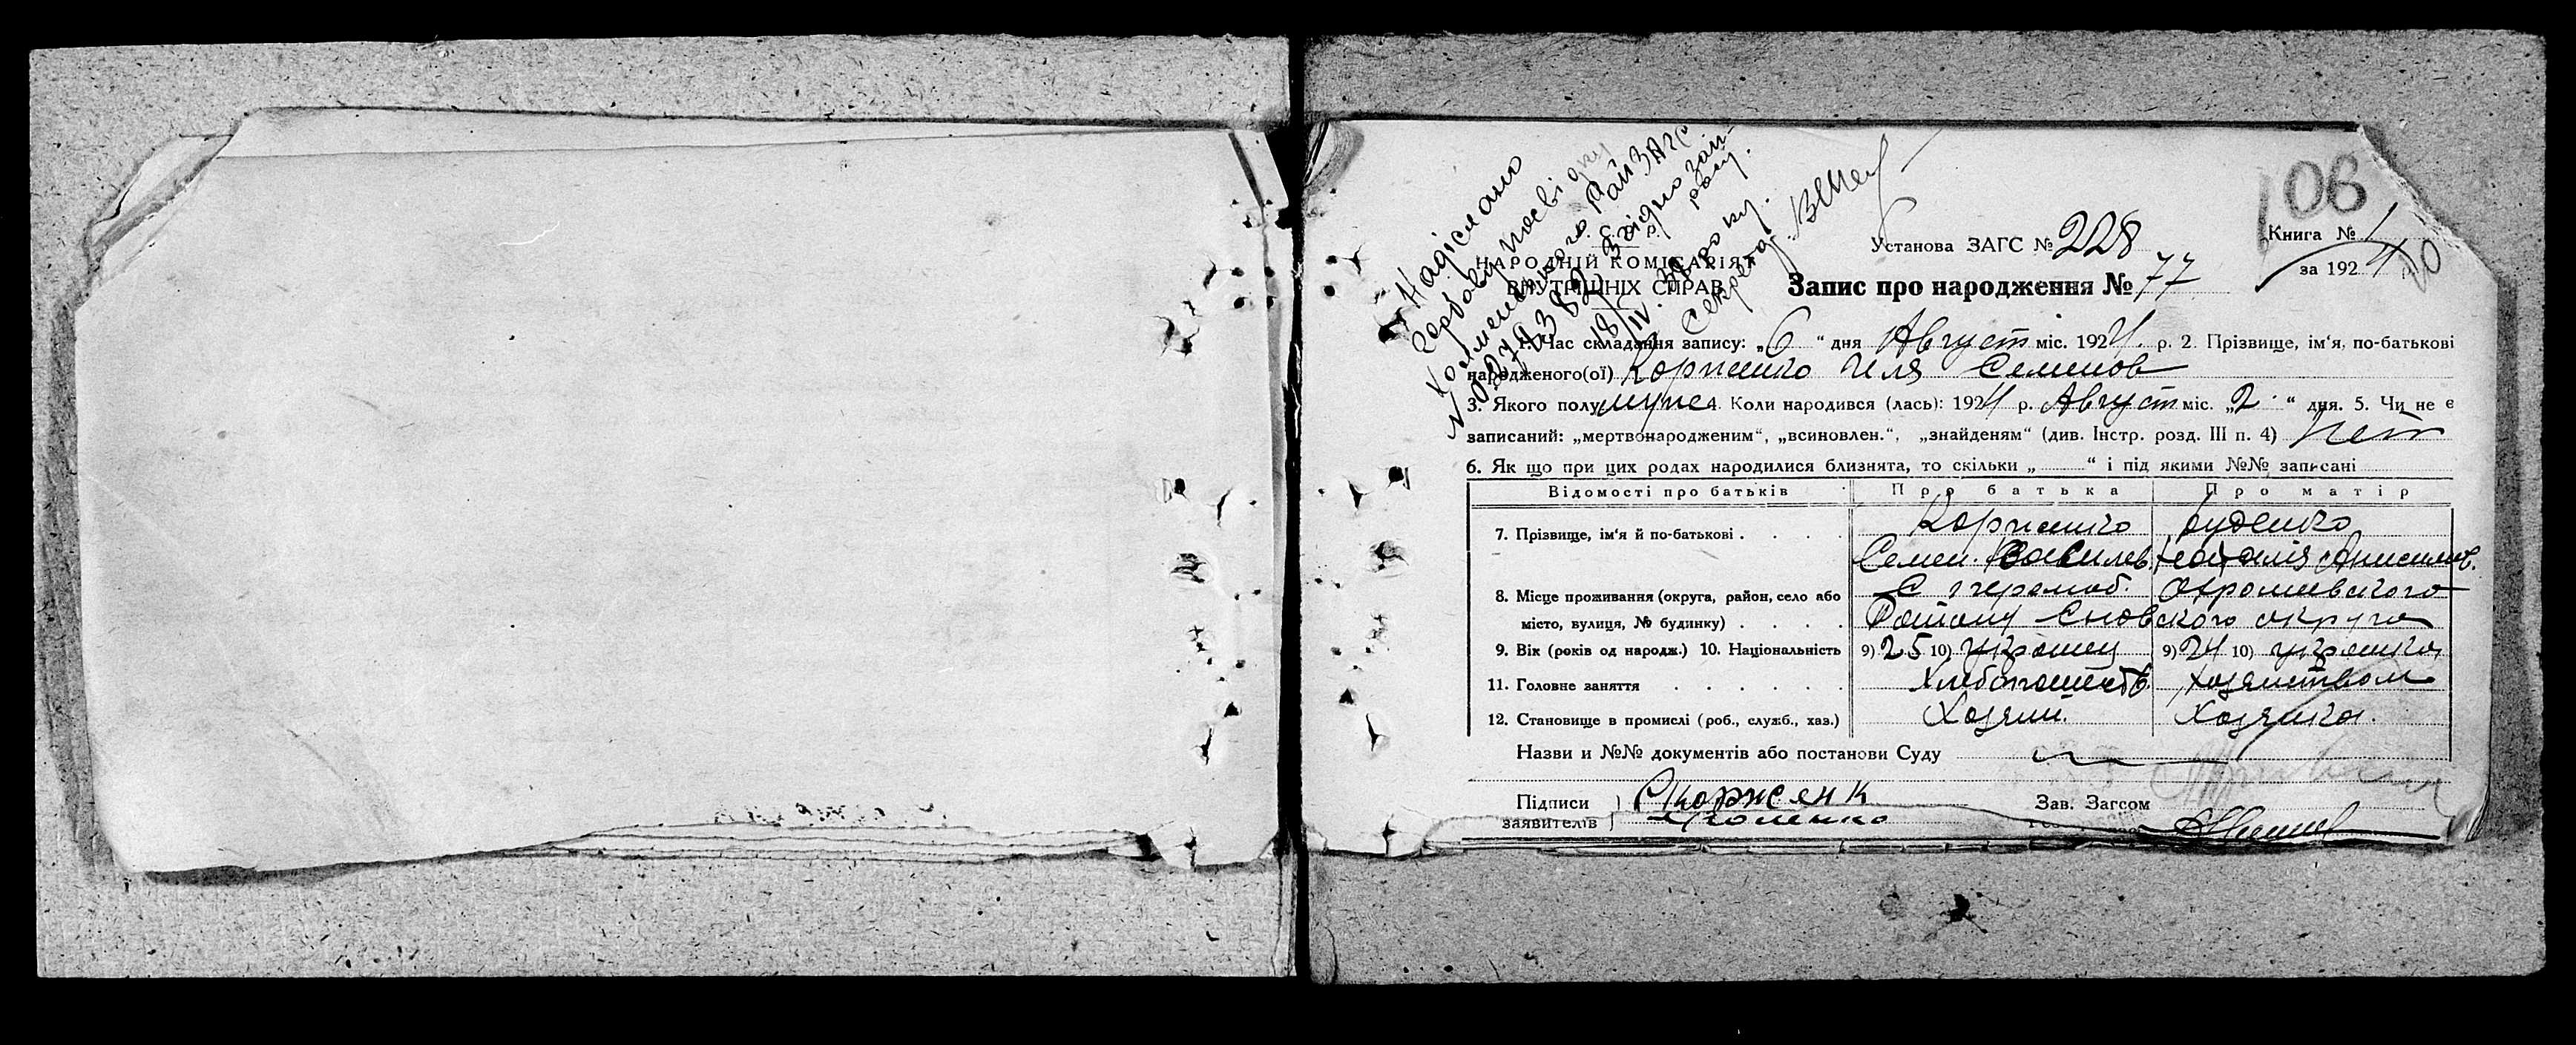 Надіслано
гербову посвідку
РайЗАГС
№ 027938 згідно
18/IV.
Секретар
108
Книга № 1
Установа ЗАГС № 228
за 1924
НАРОДНІЙ КОМІСАРІЯТ
ВНУТРІШНІХ СПРАВ
Запис про народження № 77
1. Час складання запису: „6“ дня Август міс. 1924 р. 2. Прізвище, ім‘я, по-батькові
народженого(ої) Корженко Иля Семенов
3. Якого полу муже 4. Коли народився (лась): 1924 р. Август міс. „2“ дня. 5. Чи не є
записаний: „мертвонародженим“, „всиновлен.“, „знайденям“ (див. Інстр. розд. III п. 4) Нет
6. Як що при цих родах народилися близнята, то скільки „ “ і під якими №№ записані
Відомості про батьків Про батька Про матір
7. Прізвище, ім‘я й по-батькові . . . . Корженко Руденко
Семен Василев. Наталія Анисимов.
8. Місце проживання (округа, район, село або С
місто, вулиця, № будинку) . . . . Району Сновского округа
9. Вік (років од народж.) 10. Національність 9) 25 10) украинец 9) 24 10) украинка
11. Головне заняття . . . . . . Хлебопашеств. хозяйством
12. Становище в промислі (роб., служб., хаз.) Хозяин. Хозяйка.
Назви и №№ документів або постанови Суду
Підписи Корженк Зав. Загсом
заявителів